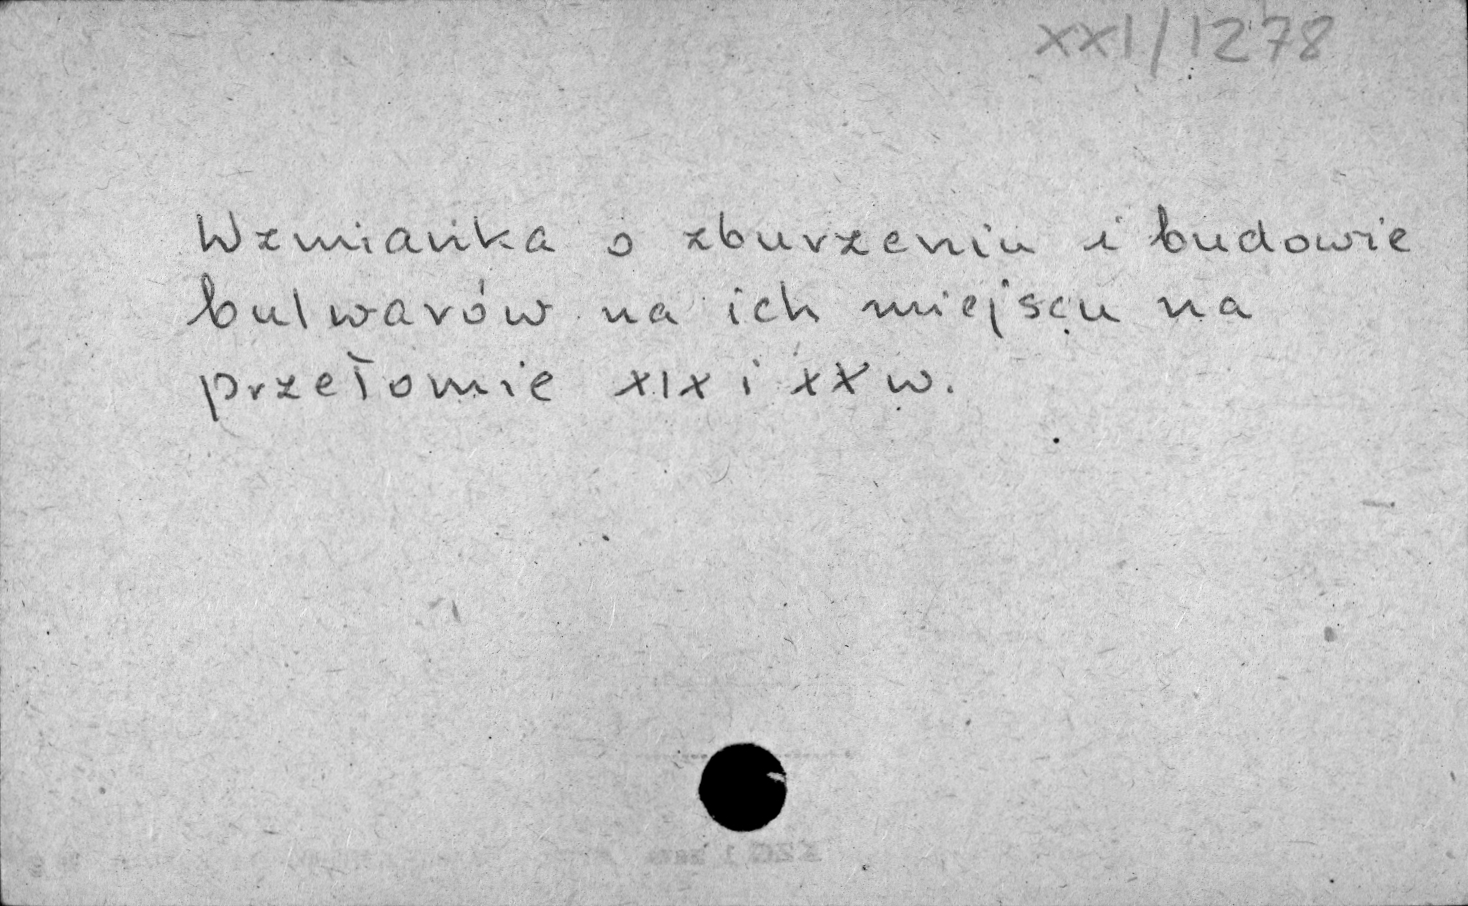 XXI/1278
Wzmianka o zburzeniu i budowie
bulwarów na ich miejscu na
przełomie XIX i XX w.